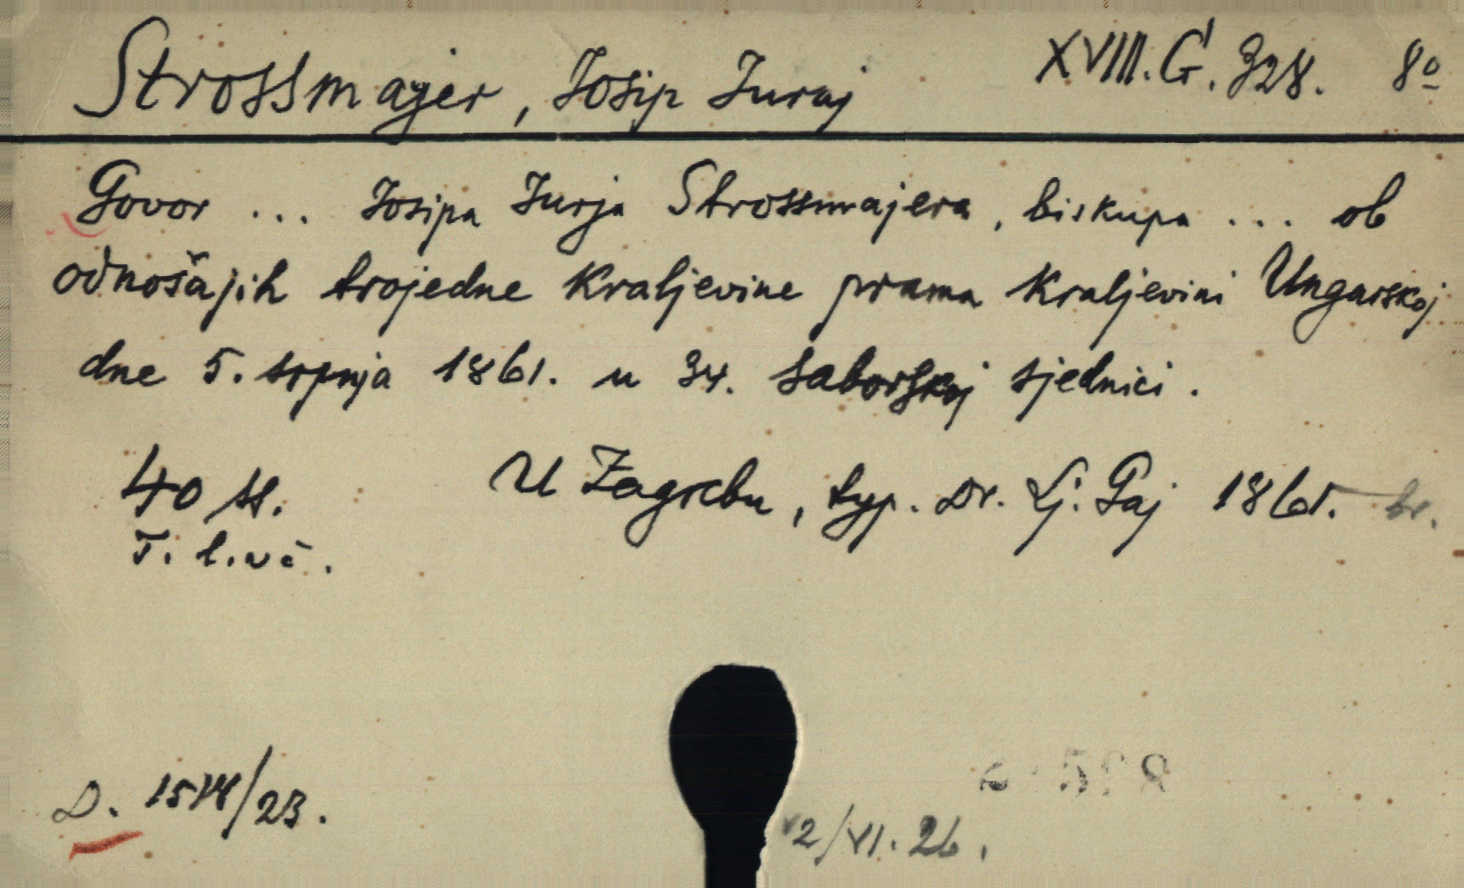 Strossmajer, Josip Juraj XVIII. G. 328. 8º
Govor ... Josipa Jurja Strossmajera, biskupa ... ob
odnošajih trojedne Kraljevine prama Kraljevini Ungarskoj
dne 5. srpnja 1861. u 34. saborskoj sjednici.
40 ss. U Zagrebu, typ. Dr. Lj. Gaj 1861. br.
D. 23.
2/VI. 26.